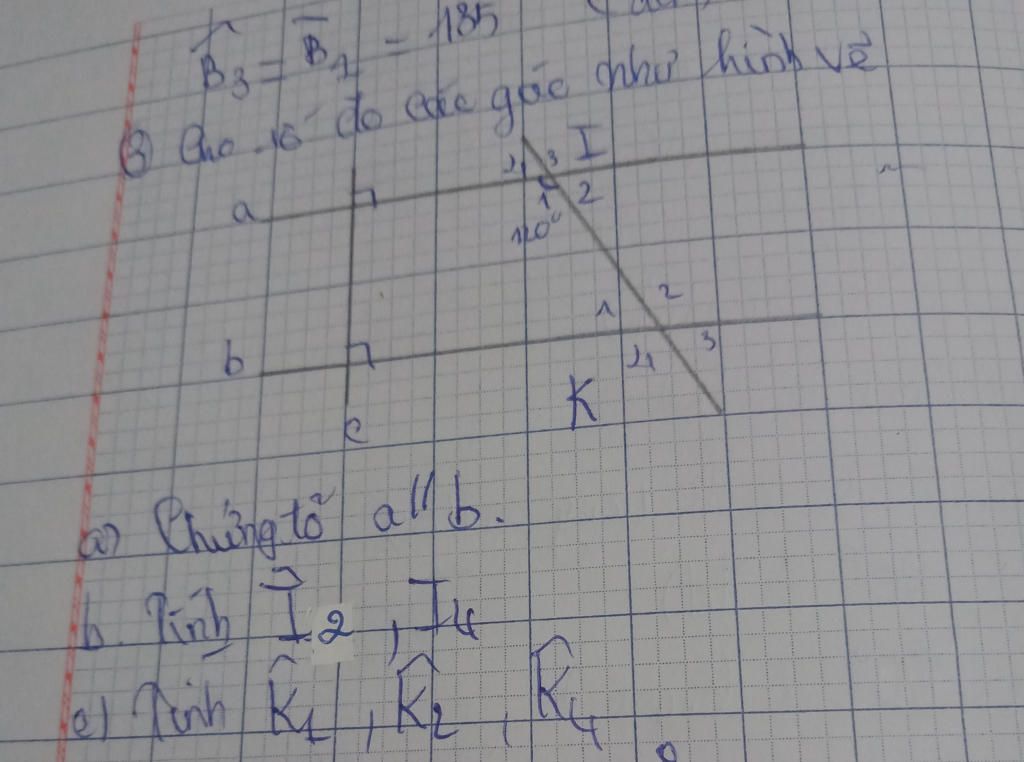 B̂3 = B̂1 = 135
3) Cho số đo các góc như hình vẽ
I
4 3
a 1 2
110°
1 2
b 4 3
K
c
a) Chứng tỏ a // b.
b. Tính Î2, I4
c) Tính K̂1, K̂2, K̂4